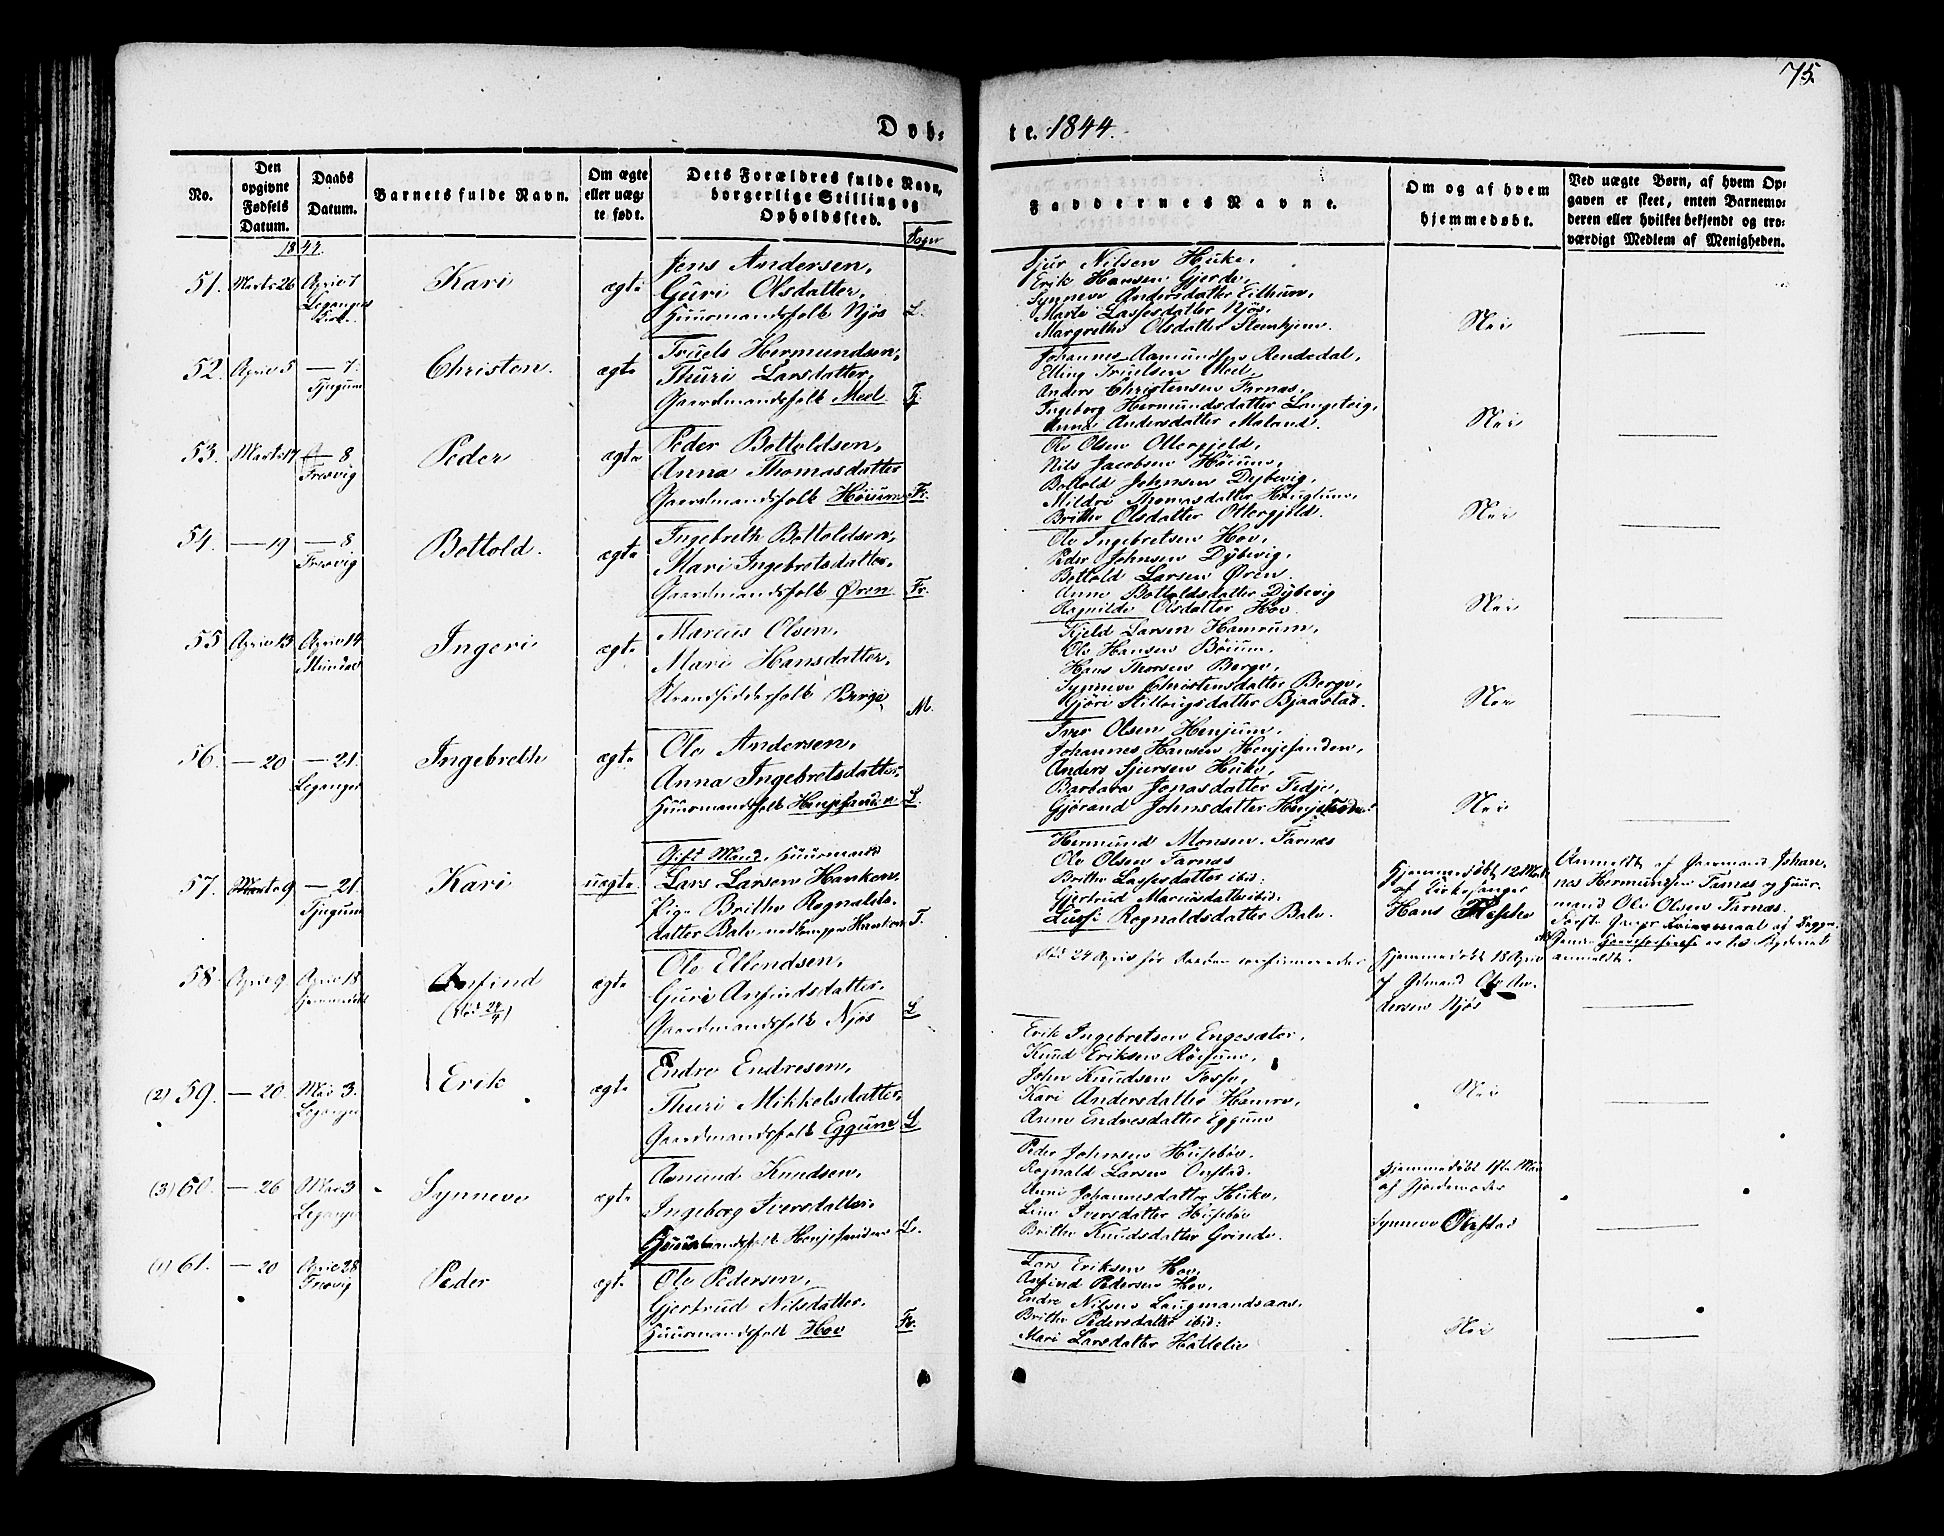 75.
Døb-
te. 1844.
No.
Den opgivne Fødsels Datum.
Daabs Datum.
Barnets fulde Navn.
Om ægte eller uægte født.
Dets Forældres fulde Navn, borgerlige Stilling og Opholdssted.
Sogn
Faddernes Navne.
Om og af hvem hjemmedøbt.
Ved uægte Børn, af hvem Opgaven er skeet, enten Barnemoderen eller hvilket bekjendt og troværdigt Medlem af Menigheden.
1844.
51. Marts 26 April 7 Leganger Kirk.
Kari
ægte
Jens Andersen,
Guri Olsdatter,
Huusmandsfolk Njøs L.
Sjur Nilsen Huke,
Erik Hansen Gjerde,
Synneve Andersdatter Eithun,
Marte Lassesdatter Njøs,
Margrethe Olsdatter Steenhjem.
Nei
52. April 5 — 7. Tjugum
Christen.
ægte
Truels Hermundsen,
Thuri Larsdatter,
Gaardmandsfolk Meel T.
Johannes Aamundsen Rendedal,
Elling Truelsen Meel,
Anders Christensen Farnæs,
Ingeborg Hermundsdatter Langeteig,
Anna Andersdatter Maland.
Nei
53. Marts 17 — 8 Fresvig
Peder
ægte
Peder Bottoldsen,
Anna Thomasdatter
Gaardmandsfolk Høium Fr.
Ole Olsen Ottergjeld,
Nils Jacobsen Høium,
Bottold Johnsen Dybevig,
Mildri Thomasdatter Hauglum,
Brithe Olsdatter Ottergjeld.
Nei
54. — 19 — 8 Fresvig
Bottold.
ægte
Ingebreth Bottoldsen,
Mari Ingebretsdatter,
Gaardmandsfolk Øren Fr.
Ole Ingebretsen Hov,
Peder Johnsen Dybevig,
Bottold Larsen Øren.
Anne Bottoldsdatter Dybevig
Ragnilde Olsdatter Hov.
Nei
55 April 13 April 14 Mundal
Ingeri
ægte
Marcus Olsen,
Mari Hansdatter,
Strandsidderfolk Berge M.
Kjeld Larsen Hamrum,
Ole Hansen Bøium,
Hans Thorsen Berge,
Synneve Christensdatter Berge,
Gjøri Stillougsdatter Bjaastad.
Nei
56. — 20 — 21. Leganger
Ingebreth
ægte
Ole Andersen,
Anna Ingebretsdatter,
Huusmandsfolk Henjesanden L.
Iver Olsen Henjum,
Johannes Hansen Henjesanden,
Anders Sjursen Huke,
Barbara Jonasdatter Fedje,
Gjørand Johnsdatter Henjesanden.
Nei
57. Marts 9 — 21. Tjugum
Kari
uægte
Gift Mand, Huusmand
Lars Larsen Hanken
Pige Brithe Rognalds-
datter Bale T.
Hermund Monsen Farnæs
Ole Olsen Farnæs
Brithe Lassesdatter ibid:
Gjertrud Mariusdatter ibid:
Lussi Rognaldsdatter Bale.
Hjemmedøbt 12 Marts
af Kirkesanger
Hans
Anmeldt af Gaardmand Johan-
nes Hermundsen Farnæs og Huus-
mand Ole Olsen Farnæs.
Første Gangs Leiermaal af
anmeldt.
58. April 9. April 18. Hjemmedøbt
Anfind
(død 24/4)
ægte
Ole Ellendsen,
Guri Anfindsdatter,
Gaardmandsfolk Njøs L
Død 24 April før Daaben confirmeredes
Hjemmedøbt 18 April
af Gdmand Ole An-
dersen Njøs
(2) 59. — 20. Mai 3. Leganger
Erik
ægte
Endre Endresen,
Thuri Mikkelsdatter,
Gaardmandsfolk Eggum L
Erik Ingebretsen Engesæter,
Knud Eriksen Røisum,
John Knudsen Fosse,
Kari Andersdatter Hamre,
Anne Endresdatter Eggum
Nei
(3) 60. — 26 Mai 3 Leganger
Synneve
ægte
Asmund Knudsen,
Ingeborg Iversdatter,
Huusmandsfolk Henjesanden L.
Peder Johnsen Husebøe,
Rognald Larsen Orstad,
Anne Johannesdatter Huke,
Line Iversdatter Husebøe
Brithe Knudsdatter Grinde.
Hjemmedøbt 1ste Mai
af Gjordemoder
Synneve Orstad
(1) 61. — 20 April 28 Fresvig
Peder
ægte
Ole Pedersen,
Gjertrud Nilsdatter,
Huusmandsfolk Hov Fr.
Lars Eriksen Hov,
Anfind Pedersen Hov,
Endre Nilsen Laugmandsaas,
Brithe Pedersdatter ibid:
Mari Larsdatter Hattelie
Nei